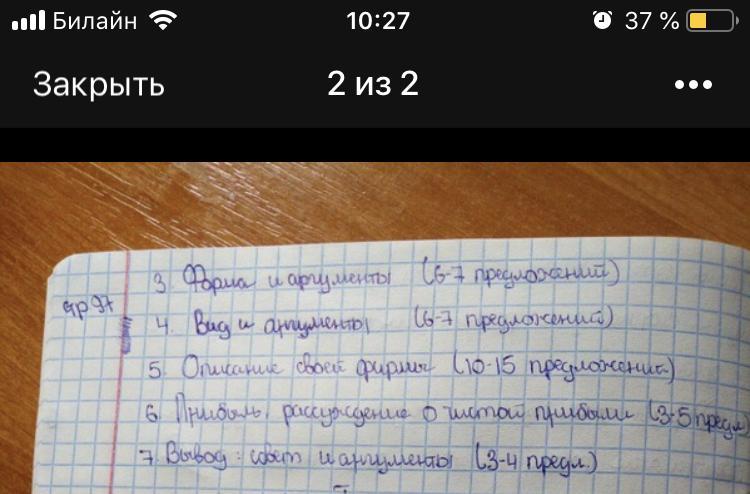 Билайн 10:27 37 %
Закрыть 2 из 2 •••
3. Форма и аргументы (6-7 предложений)
стр 97
4. Вид и аргументы (6-7 предложений)
5. Описание своей фирмы (10-15 предложений)
6. Прибыль, рассуждение о чистой прибыли (3-5 предл)
7. Вывод: совет и аргументы (3-4 предл.)